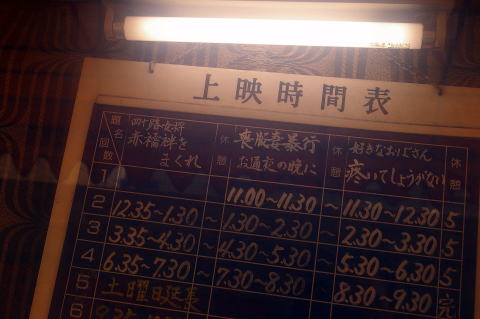 上映時間表
題名 四十路女将 赤襦袢を まくれ 休憩 喪服妻暴行 お通夜の晩に 休憩 好きなおりばさん 疼いてしょうがない 休憩
回数
1 11.00~11.30~11.30~12.30 5
2 12.35~1.30~1.30~2.30~2.30~3.30 5
3 3.35~4.30~4.30~5.30~5.30~6.30 5
4 6.35~7.30~7.30~8.30~8.30~9.30 完
5 土曜日延長
6